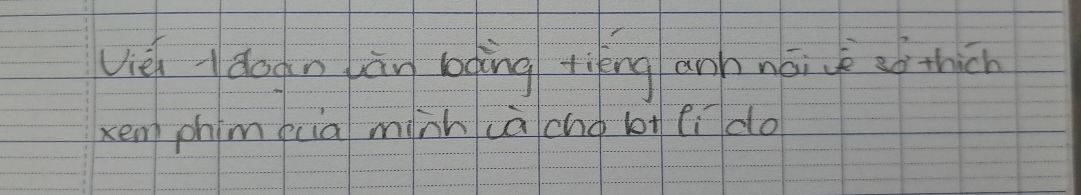 Viết 1 đoạn văn bằng tiếng anh nói về sở thích
xem phim của mình và cho bt lí do